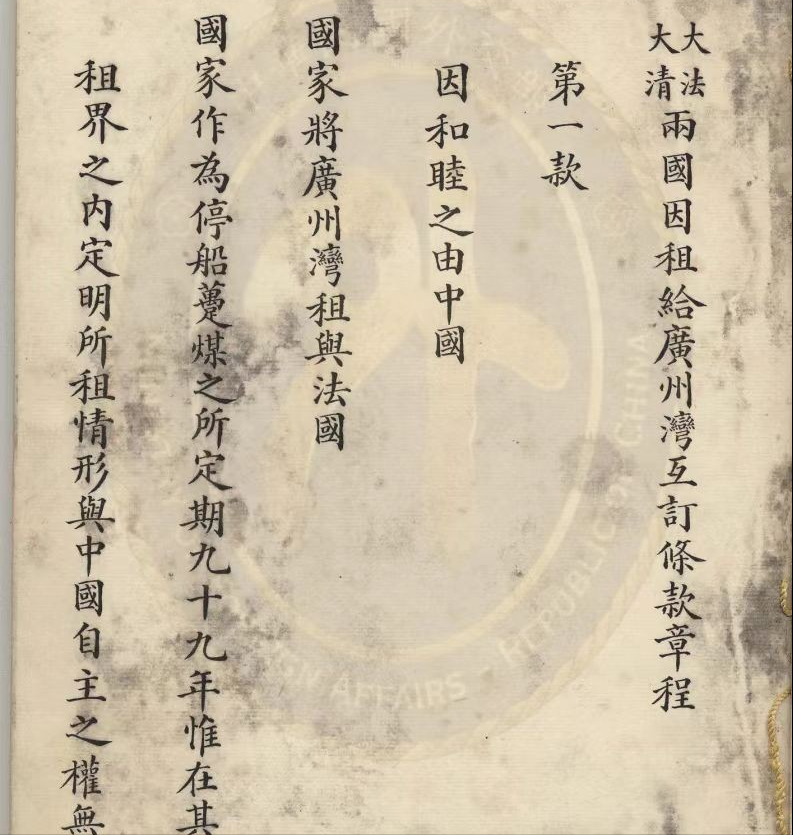 大法
大清
兩國因租給廣州灣互訂條款章程
第一款
因和睦之由中國
國家將廣州灣租與法國
國家作為停船躉煤之所定期九十九年惟在其
租界之內定明所租情形與中國自主之權無
AFFAIRS REPUBLIC OF